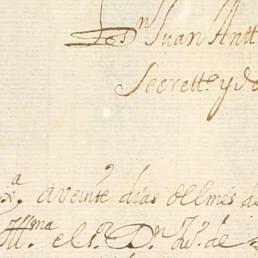 Dⁿ Juan Antt
Secrettº. y d
xª. a veinte dias del mes de
Illᵐᵃ. el sʳ. Dⁿ. Juº. de